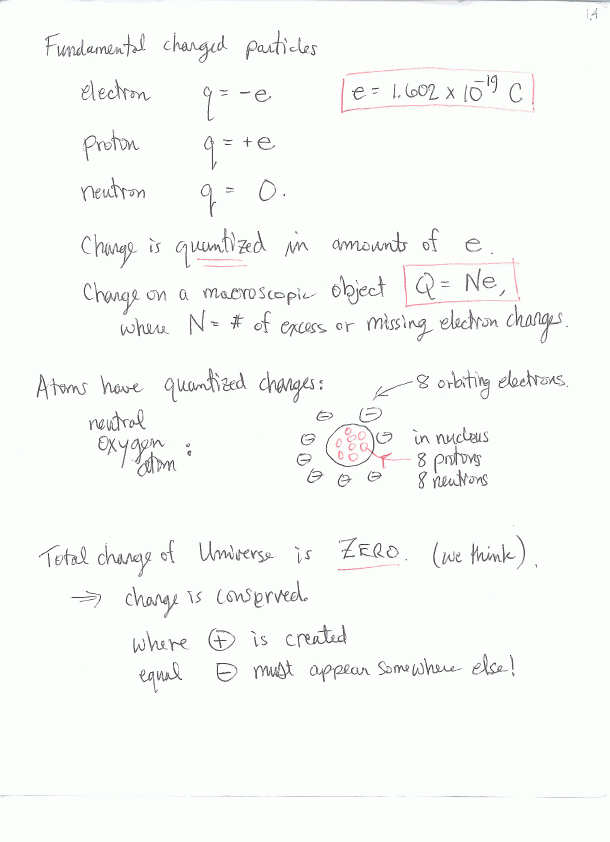 1.4
Fundamental charged particles
electron q = -e e = 1.602 x 10^-19 C
proton q = +e
neutron q = 0.
Charge is quantized in amounts of e.
Charge on a macroscopic object Q = Ne,
where N = # of excess or missing electron charges.
Atoms have quantized charges:
8 orbiting electrons.
neutral
oxygen
atom :
in nucleus
8 protons
8 neutrons
Total charge of Universe is ZERO. (we think).
⇒ charge is conserved.
where ⊕ is created
equal ⊖ must appear somewhere else!